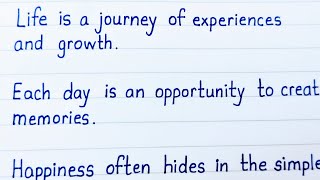 Life is a journey of experiences
and growth.
Each day is an opportunity to creat
memories.
Happiness often hides in the simple